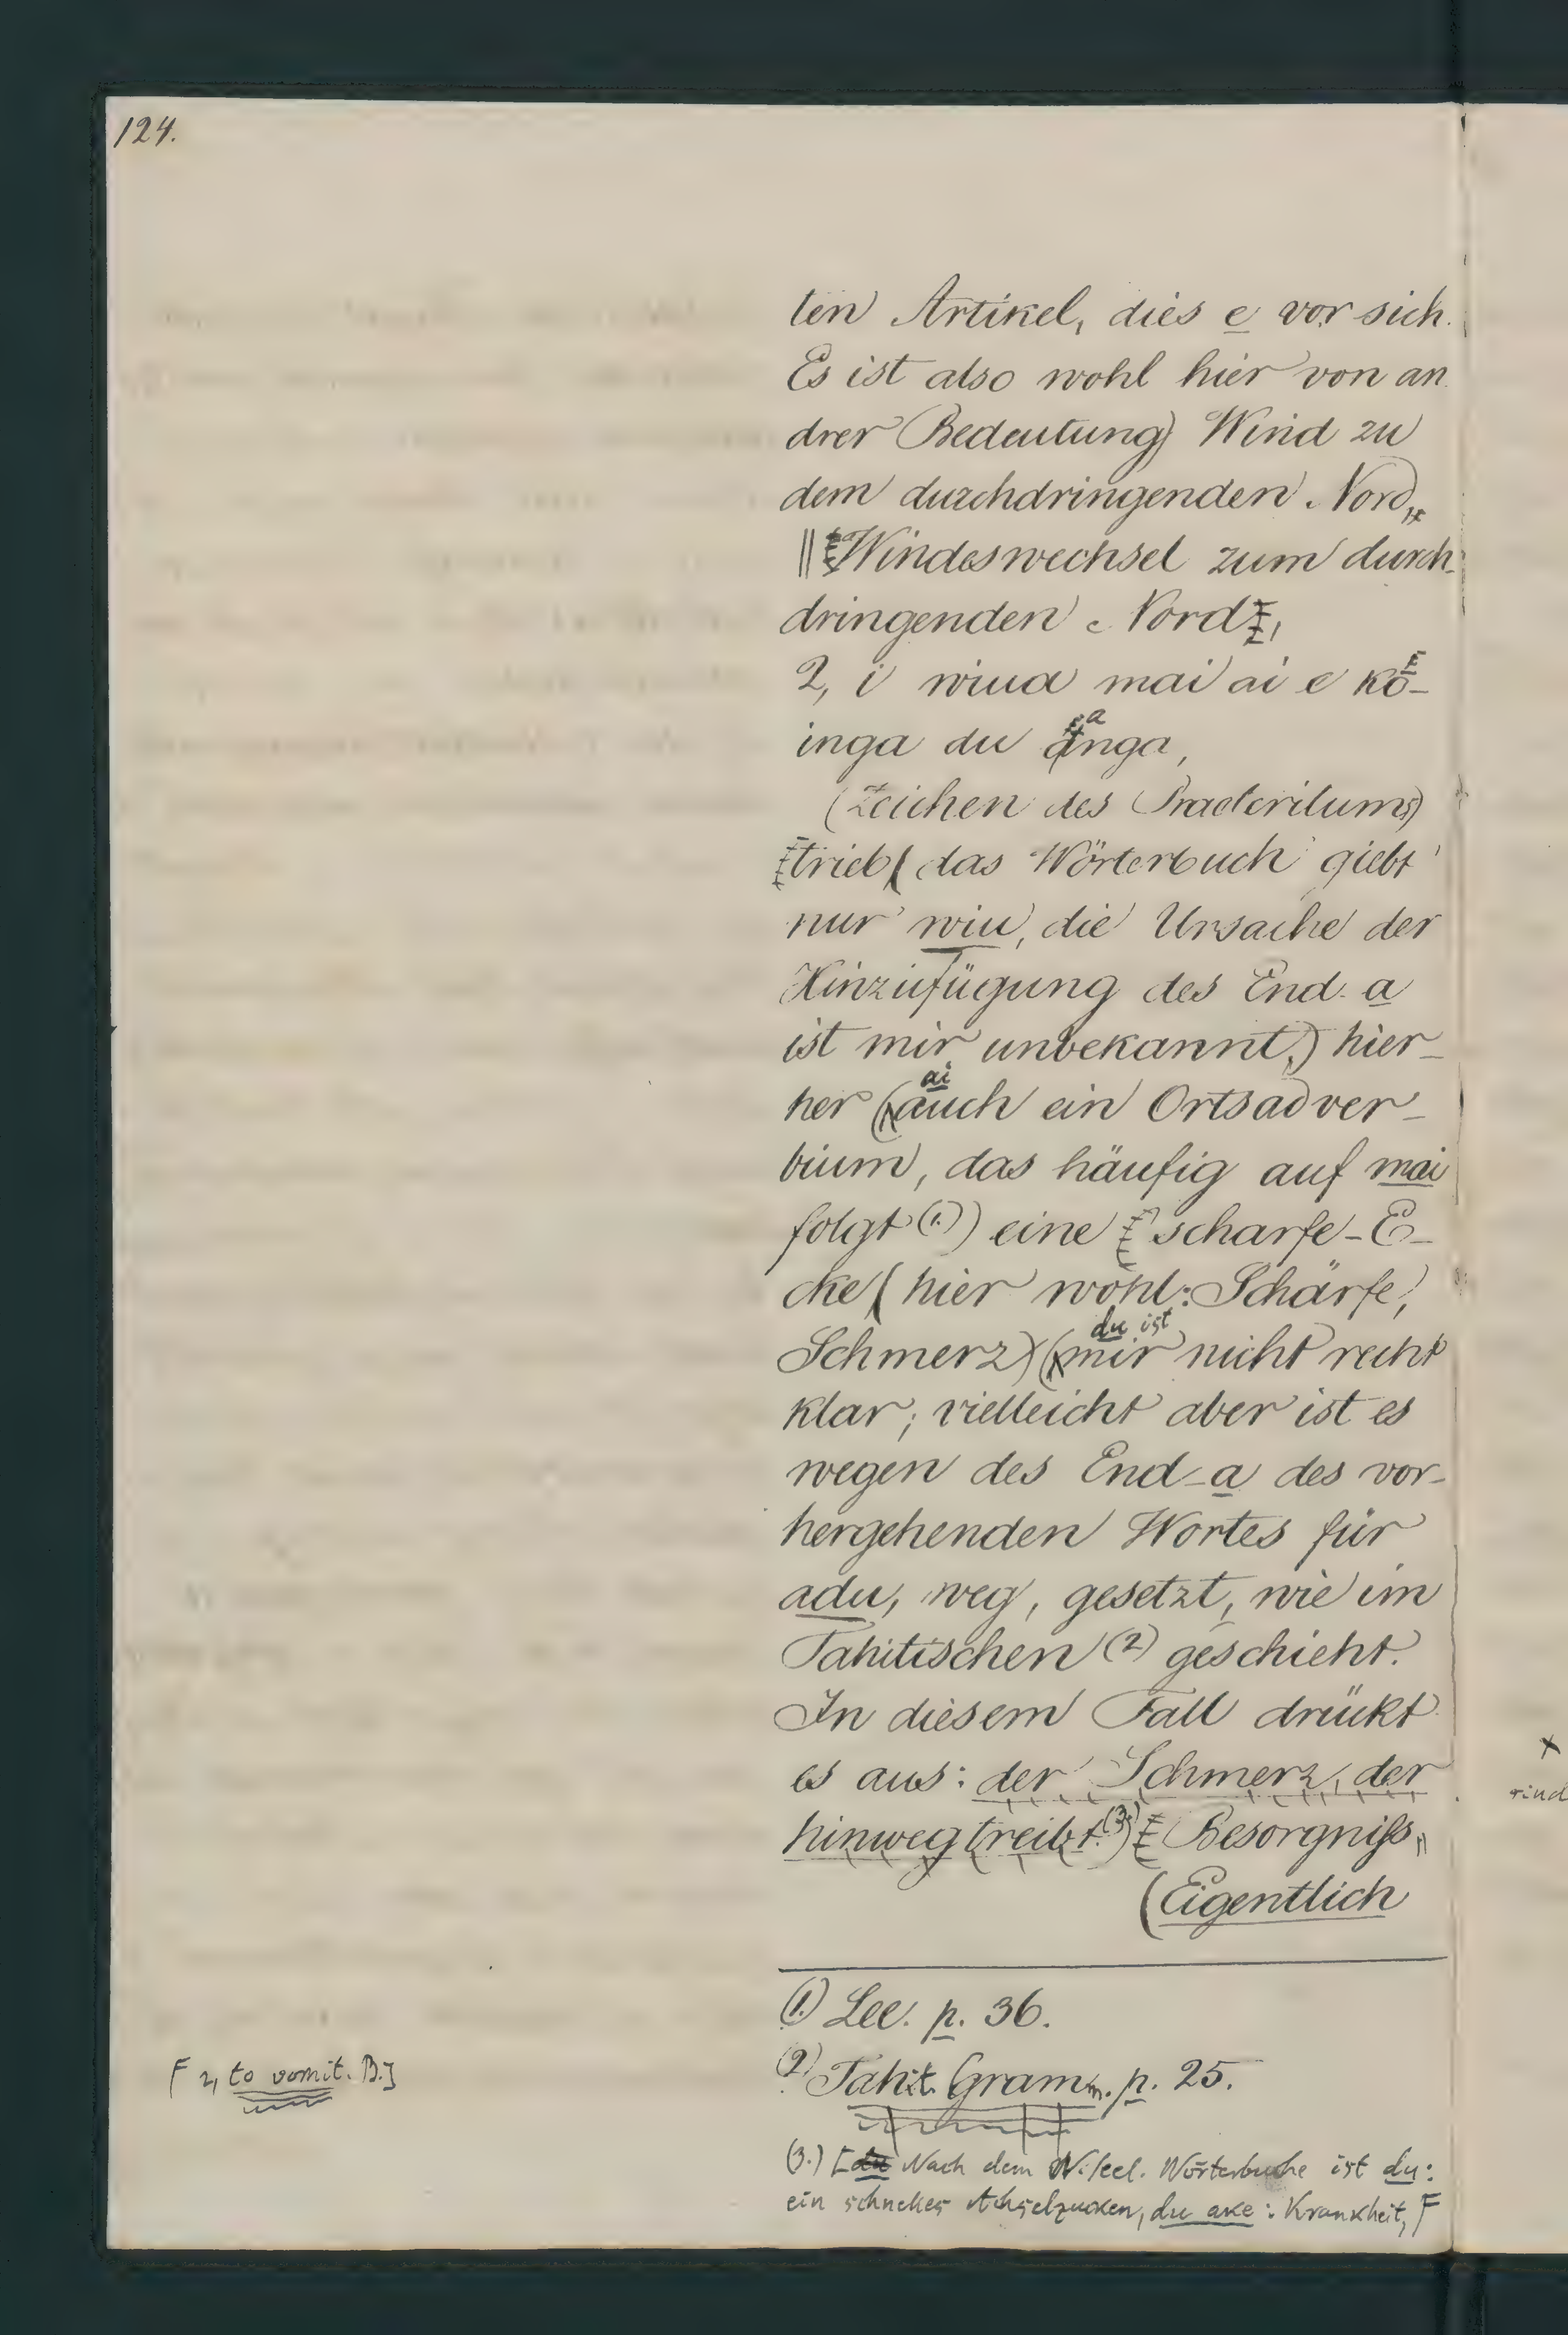 124.
ten Artikel, dies e vor sich.
Es ist also wohl hier von an
drer Bedeutung) Wind zu
dem durchdringenden Nord,,
|| Windeswechsel zum durch-
dringenden Nord,
2, i wiua mai ai e ko-
inga du anga,
(Zeichen des Praeteritums)
trieb (das Wörterbuch giebt
nur wiu, die Ursache der
Hinzufügung des End-a
ist mir unbekannt,) hier-
her (ai auch ein Ortsadver-
bium, das häufig auf mai
folgt (1.)) eine scharfe-E-
cke (hier wohl: Schärfe,
Schmerz) (du ist mir nicht recht
klar; vielleicht aber ist es
wegen des End-a des vor-
hergehenden Wortes für
adu, weg, gesetzt, wie im
Tahitischen (2) geschieht.
In diesem Fall drückt
es aus: der Schmerz, der
hinwegtreibt. (3.)) Besorgniss,,
(Eigentlich
(1.) Lee. p. 36.
(2) Tahit. Gramm. p. 25.
(3.) [du Nach dem Wörterbuche ist du:
ein schnelles Achselzucken, du ake: Krankheit, F
F 2, to vomit. B.]